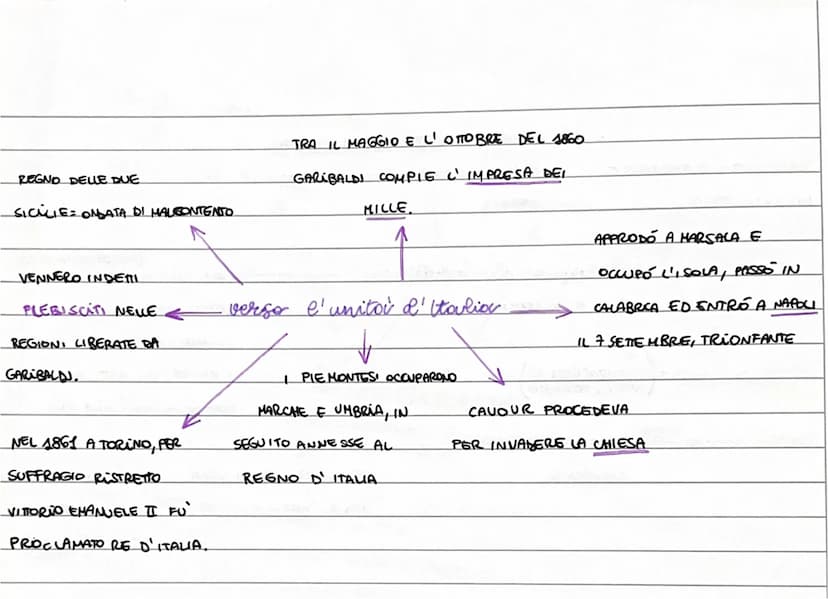 TRA IL MAGGIO E L' OTTOBRE DEL 1860
GARIBALDI COMPIE L' IMPRESA DEI
MILLE.
REGNO DELLE DUE
SICILIE= ONDATA DI MALCONTENTO
APPRODÓ A MARSALA E
OCCUPÓ L'ISOLA, PASSÓ IN
CALABRIA ED ENTRÓ A NAPOLI
IL 7 SETTEMBRE, TRIONFANTE
VENNERO INDETTI
PLEBISCITI NELLE
REGIONI LIBERATE DA
GARIBALDI.
verso l'unitá d'Italia
I PIEMONTESI OCCUPARONO
MARCHE E UMBRIA, IN
SEGUITO ANNESSE AL
REGNO D' ITALIA
CAVOUR PROCEDEVA
PER INVADERE LA CHIESA
NEL 1861 A TORINO, PER
SUFFRAGIO RISTRETTO
VITTORIO EMANUELE II FU'
PROCLAMATO RE D'ITALIA.